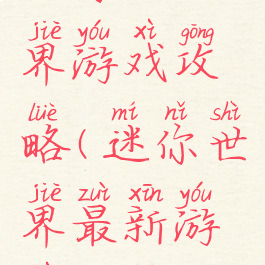 jiè yóu xì gōng
界游戏攻
lüè mí nǐ shì
略(迷你世
jiè zuì xīn yóu
界最新游